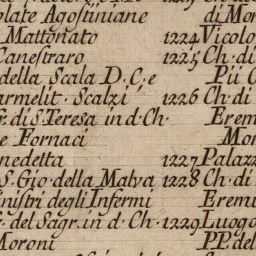 olate Agostiniane
Mattonato 1224
Canestraro 1225
della Scala D.C, e
armelit. Scalzi 1226
di S. Teresa in d. Ch.
e Fornaci
nedetta 1227
S. Gio. della Malva 1228
inistri degli Infermi
del Sagr. in d. Ch. 1229
Moroni
di Mor
Vicolo
Ch. di
Più C
Ch. di
Erem
Mor
Palazz
Ch. di
Eremi
Luogo
PP. del